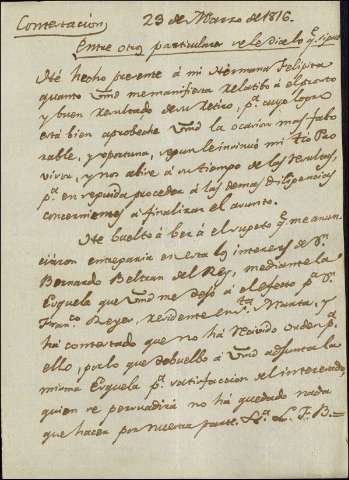 Contestacion 23 de Marzo de 1816.
Entre otros particulares se le dice lo q.e sigue
Hé hecho presente á mi Hermana Felipita
quanto Vmd me manifiesta relatibo á el pronto
y buen resultado de su retiro, p.a cuyo logro
está bien aprobeche Vmd la ocasion mas fabo
rable, y oportuna, segun le insinuó mi Tio Pro
visor, y nos abise á su tiempo de las resultas,
p.a en seguida proceder á las demas diligencias
concernientes á finalizar el asunto.
Hé buelto á ber á el sugeto q.e me anun
ciaron entregaria en esta los intereses de D.n
Bernardo Beltran del Rey, mediante la
Esquela que Vmd me dejó á el efecto p.a D.n
Fran.co Reyes, residente en S.ta Marta, y
há contestado que no há recivido orden p.a
ello, por lo que debuelbo á Vmd adjunta la
misma Esquela p.a satisfaccion del interesado,
quien se persuadirá no há quedado nada
que hacer por nuestra parte.